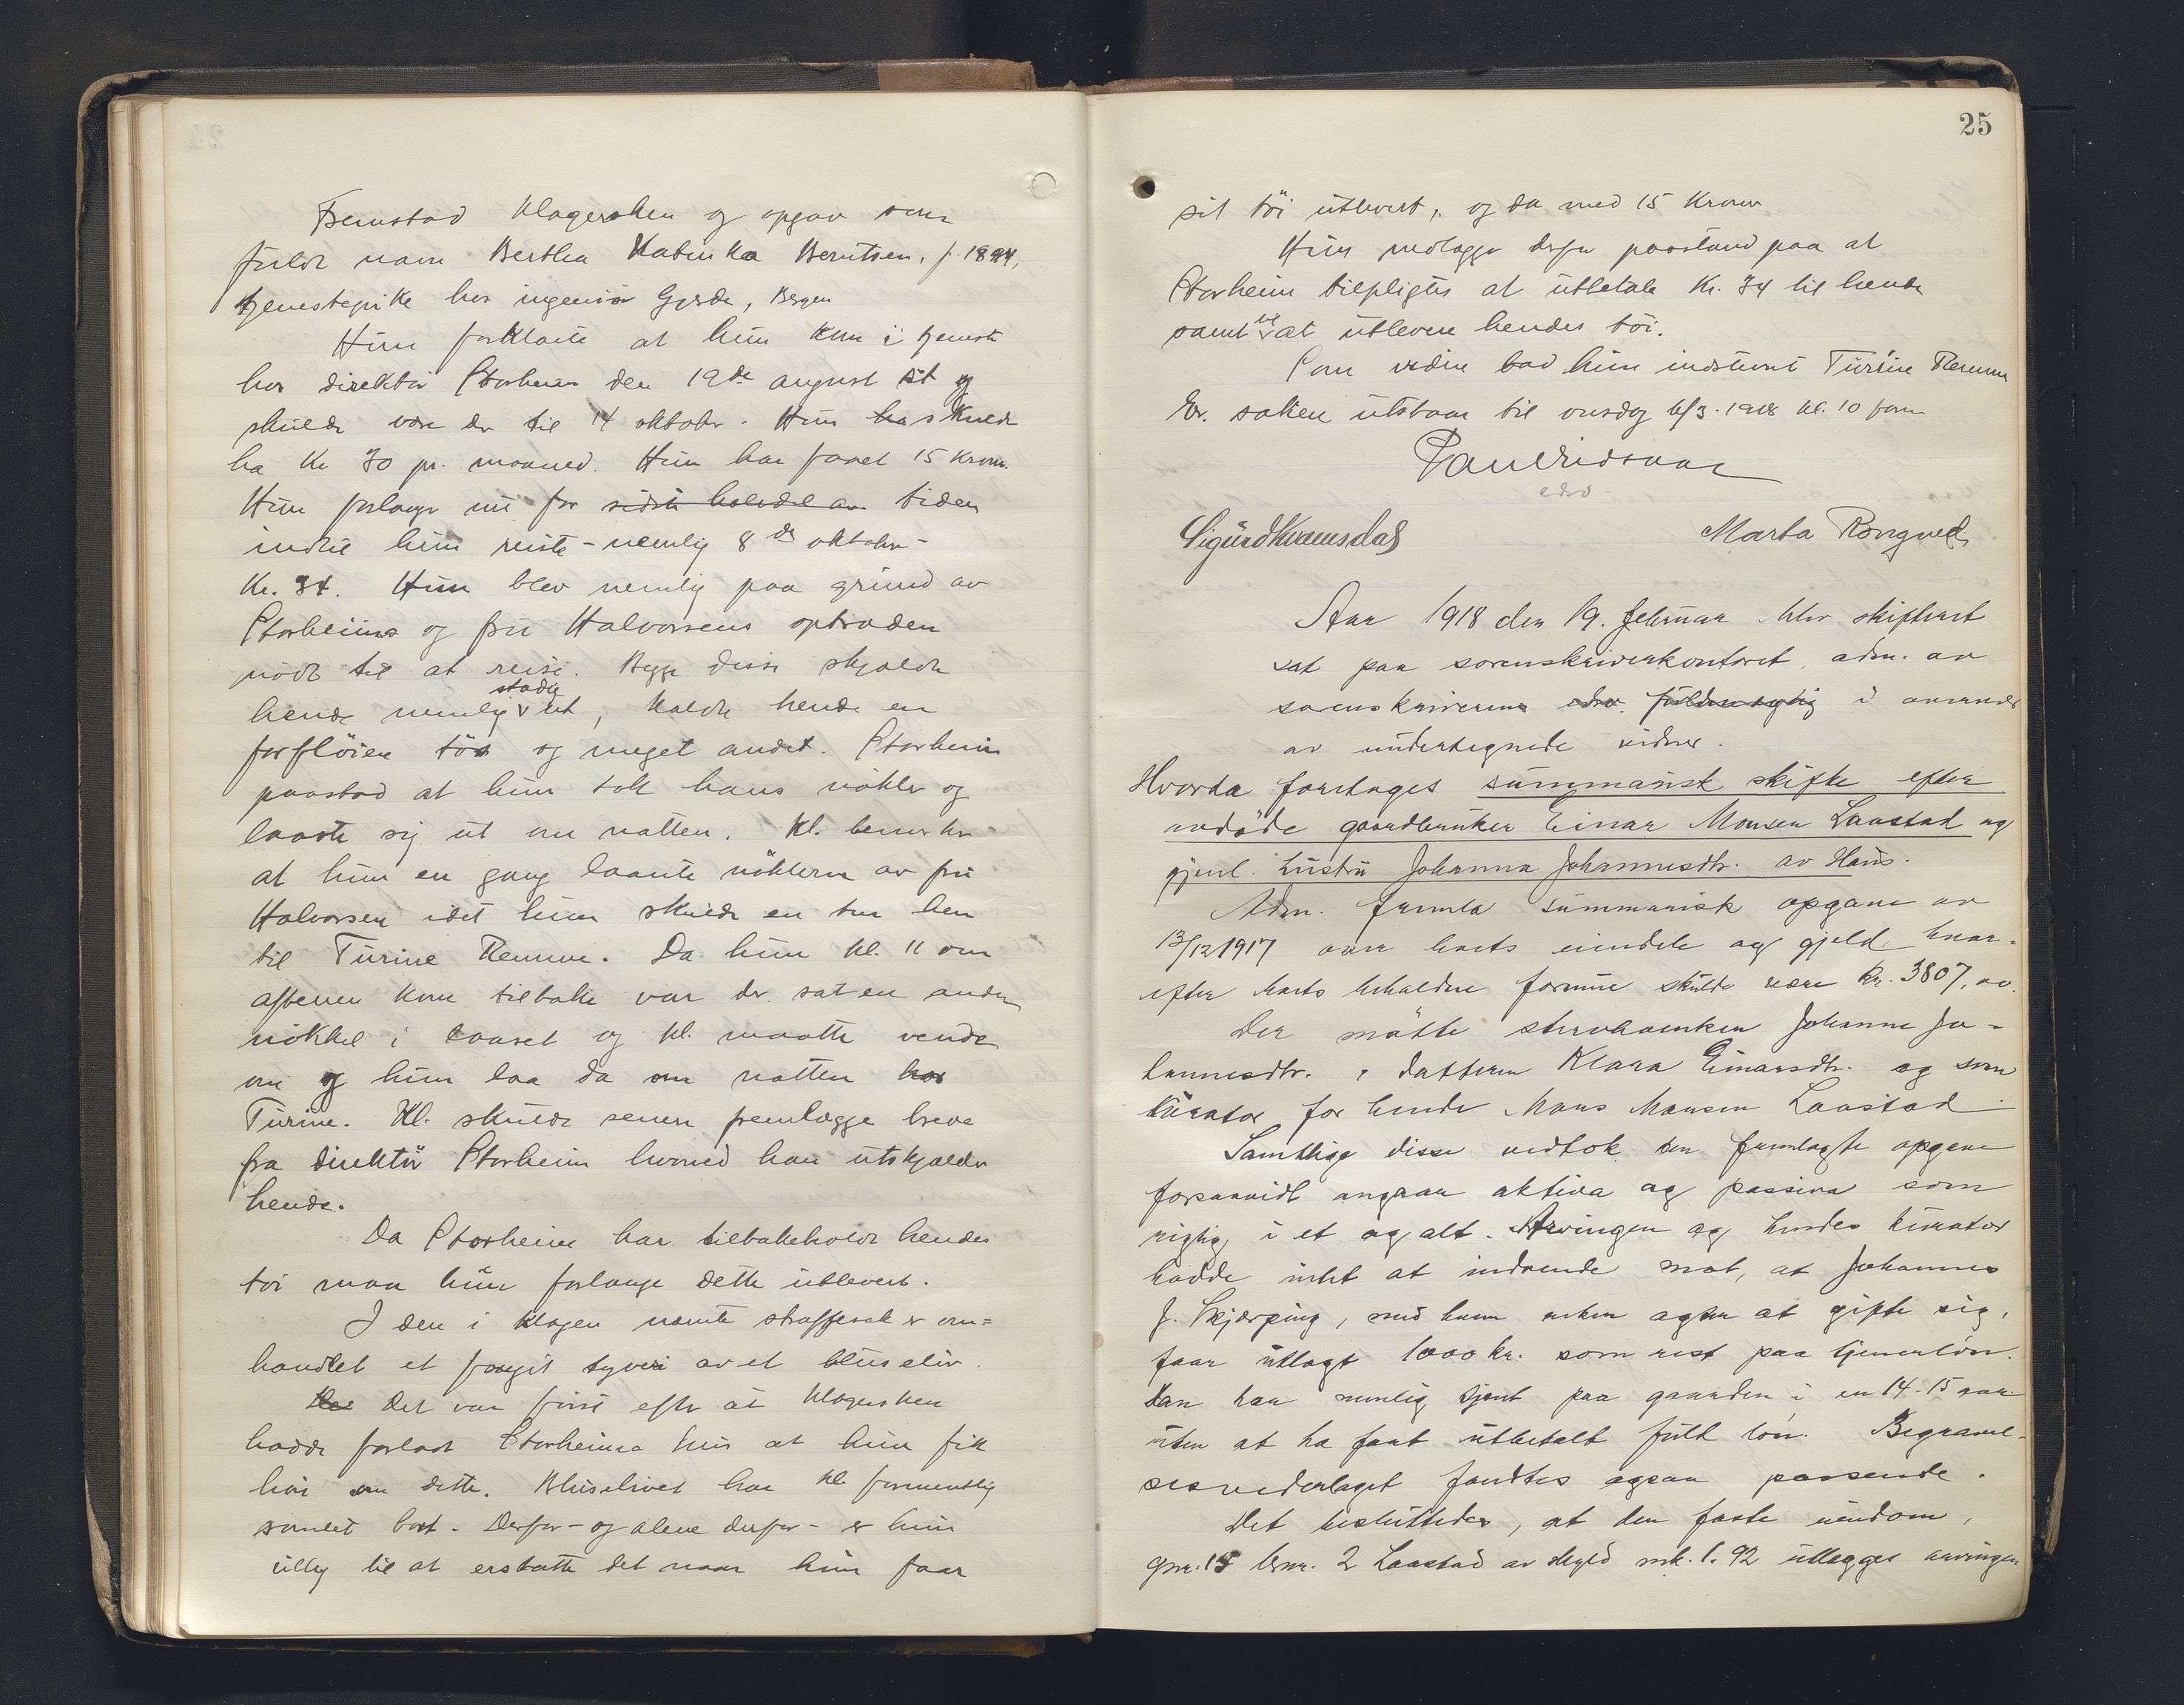 Fremstod Klagersken og opgav som
fulde navn Bertha Katinka Berntsen, f. 1894,
tjenestepike hos ingeniör Gjerde, Bergen
Hun forklarte at hun kom i tjeneste
hos direktör Storheim den 19de august sit og
skulde være der til 14 oktober. Hun ha skulde
ha Kr 30 pr. maaned. Hun har faaet 15 Kroner.
Hun forlanger nu for sidste halvdel av tiden
indtil hun reiste - nemlig 8de oktober -
Kr. 34. Hun blev nemlig paa grund av
Storheims og fru Halvorsens optræden
nödt til at reise. Begge disse skjældte
hende nemlig stadig ut, kaldte hende en
forflöien tös og meget andet. Storheim
paastod at hun tok hans nökler og
laaste sig ut om natten. Kl. bemerker
at hun en gang laante nöklerne av fru
Halvorsen idet hun skulde en tur hen
til Turine Remme. Da hun kl. 11 om
aftenen kom tilbake var der sat en anden
nökkel i laaset og kl. maatte vende
om og hun laa da om natten hos
Turine. Kl. skulde senere fremlægge breve
fra direktör Storheim hvorved han utskjælder
hende.
Da Storheim har tilbakeholdt hendes
töi maa hun forlange dette utlevert.
I den i klagen nævnte straffesak er om=
handlet et foregit tyveri av et bluseliv.
Det var först efter at klagersken
hadde forlatt Storheims hus at hun fik
höre om dette. Bluselivet har kl. formentlig
somlet bort. Derfor - og alene derfor - er hun
villig til at erstatte det naar hun faar
25
sit töi utlevert, og da med 15 Kroner
Hun nedlægger derfor paastand paa at
Storheim tilpligtes at utbetale Kr. 34 til hende
samt til at utlevere hendes töi.
Som vidne bad hun indstevnt Turine Remme
Er. saken utstaar til onsdag 6/3. 1918 kl. 10 form
edsv
Sigurd Kvamsdal Marta Rongved
Aar 1918 den 19. februar blev skifteret
sat paa sorenskriverkontoret, adm. av
sorenskriverens edsv. fuldmægtig i overvær
av undertegnede vidner.
Hvorda foretages summarisk skifte efter
avdöde gaardbruker Einar Monsen Laastad og
gjenl. hustru Johanna Johannesdtr. av Haus.
Adm. fremla summarisk opgave av
13/12 1917 over boets eiendele og gjeld, hvor-
efter boets beholdne formue skulde være kr. 3807,00.
Der mötte sterboenken Johanna Jo-
hannesdtr., datteren Klara Einarsdtr. og som
kurator for hende Mons Monsen Laastad.
Samtlige disse vedtok den fremlagte opgave
forsaavidt angaar aktiva og passiva som
rigtig i et og alt. Arvingen og hendes kurator
hadde intet at indvende mot, at Johannes
J. Skjerping, med hvem enken agter at gifte sig,
faar utlagt 1000 kr. som rest paa tjenerlön.
Han har nemlig tjent paa gaarden i en 14-15 aar
uten at ha faat utbetalt fuld lön. Begravel-
sesvederlaget fandtes ogsaa passende.
Det besluttedes, at den faste eiendom,
gnr. 15 brnr. 2 Laastad av skyld mk. 1.92 utlegges arvingen